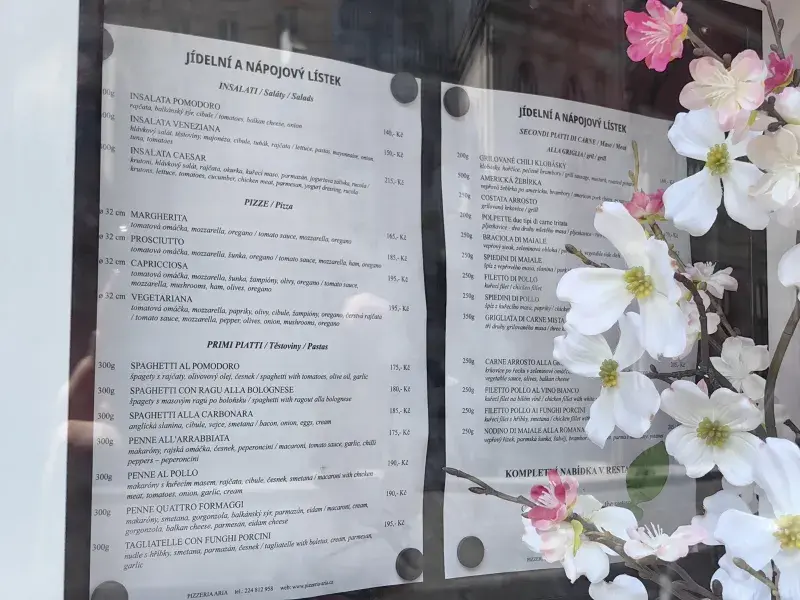 JÍDELNÍ A NÁPOJOVÝ LÍSTEK
INSALATI / Saláty / Salads
INSALATA POMODORO
rajčata, balkánský sýr, cibule / tomatoes, balkan cheese, onion
140,- Kč
INSALATA VENEZIANA
hlávkový salát, těstoviny, majonéza, cibule, tuňák, rajčata / lettuce, pasta, mayonnaise, onion,
tuna, tomatoes
150,- Kč
INSALATA CAESAR
krutoni, hlávkový salát, rajčata, okurka, kuřecí maso, parmazán, jogurtová zálivka, rucola /
krutons, lettuce, tomatoes, cucumber, chicken meat, parmesan, yogurt dressing, rucola
215,- Kč
PIZZE / Pizza
ø 32 cm MARGHERITA
tomatová omáčka, mozzarella, oregano / tomato sauce, mozzarella, oregano
165,- Kč
ø 32 cm PROSCIUTTO
tomatová omáčka, mozzarella, šunka, oregano / tomato sauce, mozzarella, ham, oregano
185,- Kč
ø 32 cm CAPRICCIOSA
tomatová omáčka, mozzarella, šunka, žampióny, olivy, oregano / tomato sauce,
mozzarella, mushrooms, ham, olives, oregano
195,- Kč
ø 32 cm VEGETARIANA
tomatová omáčka, mozzarella, papriky, olivy, cibule, žampióny, oregano, čerstvá rajčata
/ tomato sauce, mozzarella, pepper, olives, onion, mushrooms, oregano
195,- Kč
PRIMI PIATTI / Těstoviny / Pastas
300g SPAGHETTI AL POMODORO
špagety s rajčaty, olivovým olej, česnek / spaghetti with tomatoes, olive oil, garlic
175,- Kč
300g SPAGHETTI CON RAGU ALLA BOLOGNESE
špagety s masovým ragů po boloňsku / spaghetti with ragout alla bolognese
180,- Kč
300g SPAGHETTI ALLA CARBONARA
anglická slanina, cibule, vejce, smetana / bacon, onion, eggs, cream
185,- Kč
300g PENNE ALL'ARRABBIATA
makaróny, rajská omáčka, česnek, peperoncini / macaroni, tomato sauce, garlic, chilli
peppers – peperoncini
175,- Kč
300g PENNE AL POLLO
makaróny s kuřecím masem, rajčata, cibule, česnek, smetana / macaroni with chicken
meat, tomatoes, onion, garlic, cream
190,- Kč
300g PENNE QUATTRO FORMAGGI
makaróny, smetana, gorgonzola, balkánský sýr, parmazán, eidam / macaroni, cream,
gorgonzola, balkan cheese, parmesan, eidam cheese
190,- Kč
300g TAGLIATELLE CON FUNGHI PORCINI
nudle s hříbky, smetana, parmazán, česnek / tagliatelle with boletus, cream, parmesan,
garlic
195,- Kč
PIZZERIA ARIA tel. 224 812 958 web: www.pizzeria-aria.cz
JÍDELNÍ A NÁPOJOVÝ LÍSTEK
SECONDI PIATTI DI CARNE / Maso / Meat
ALLA GRIGLIA / gril / grill
200g GRILOVANÉ CHILI KLOBÁSKY
500g AMERICKÁ ŽEBÍRKA
250g COSTATA ARROSTO
grilovaná krkovice / grill
200g POLPETTE due tipi di carne tritata
250g BRACIOLA DI MAIALE
250g SPIEDINI DI MAIALE
250g FILETTO DI POLLO
kuřecí filet / chicken fillet
250g SPIEDINI DI POLLO
350g GRIGLIATA DI CARNE MISTA
250g CARNE ARROSTO ALLA
vegetable sauce, olives, balkan cheese
250g FILETTO POLLO AL VINO BIANCO
kuřecí filet na bílém víně / chicken fillet with white
250g FILETTO POLLO AI FUNGHI PORCINI
kuřecí filet s hříbky, smetana / chicken fillet with
250g NODINO DI MAIALE ALLA ROMANA
KOMPLETNÍ NABÍDKA V